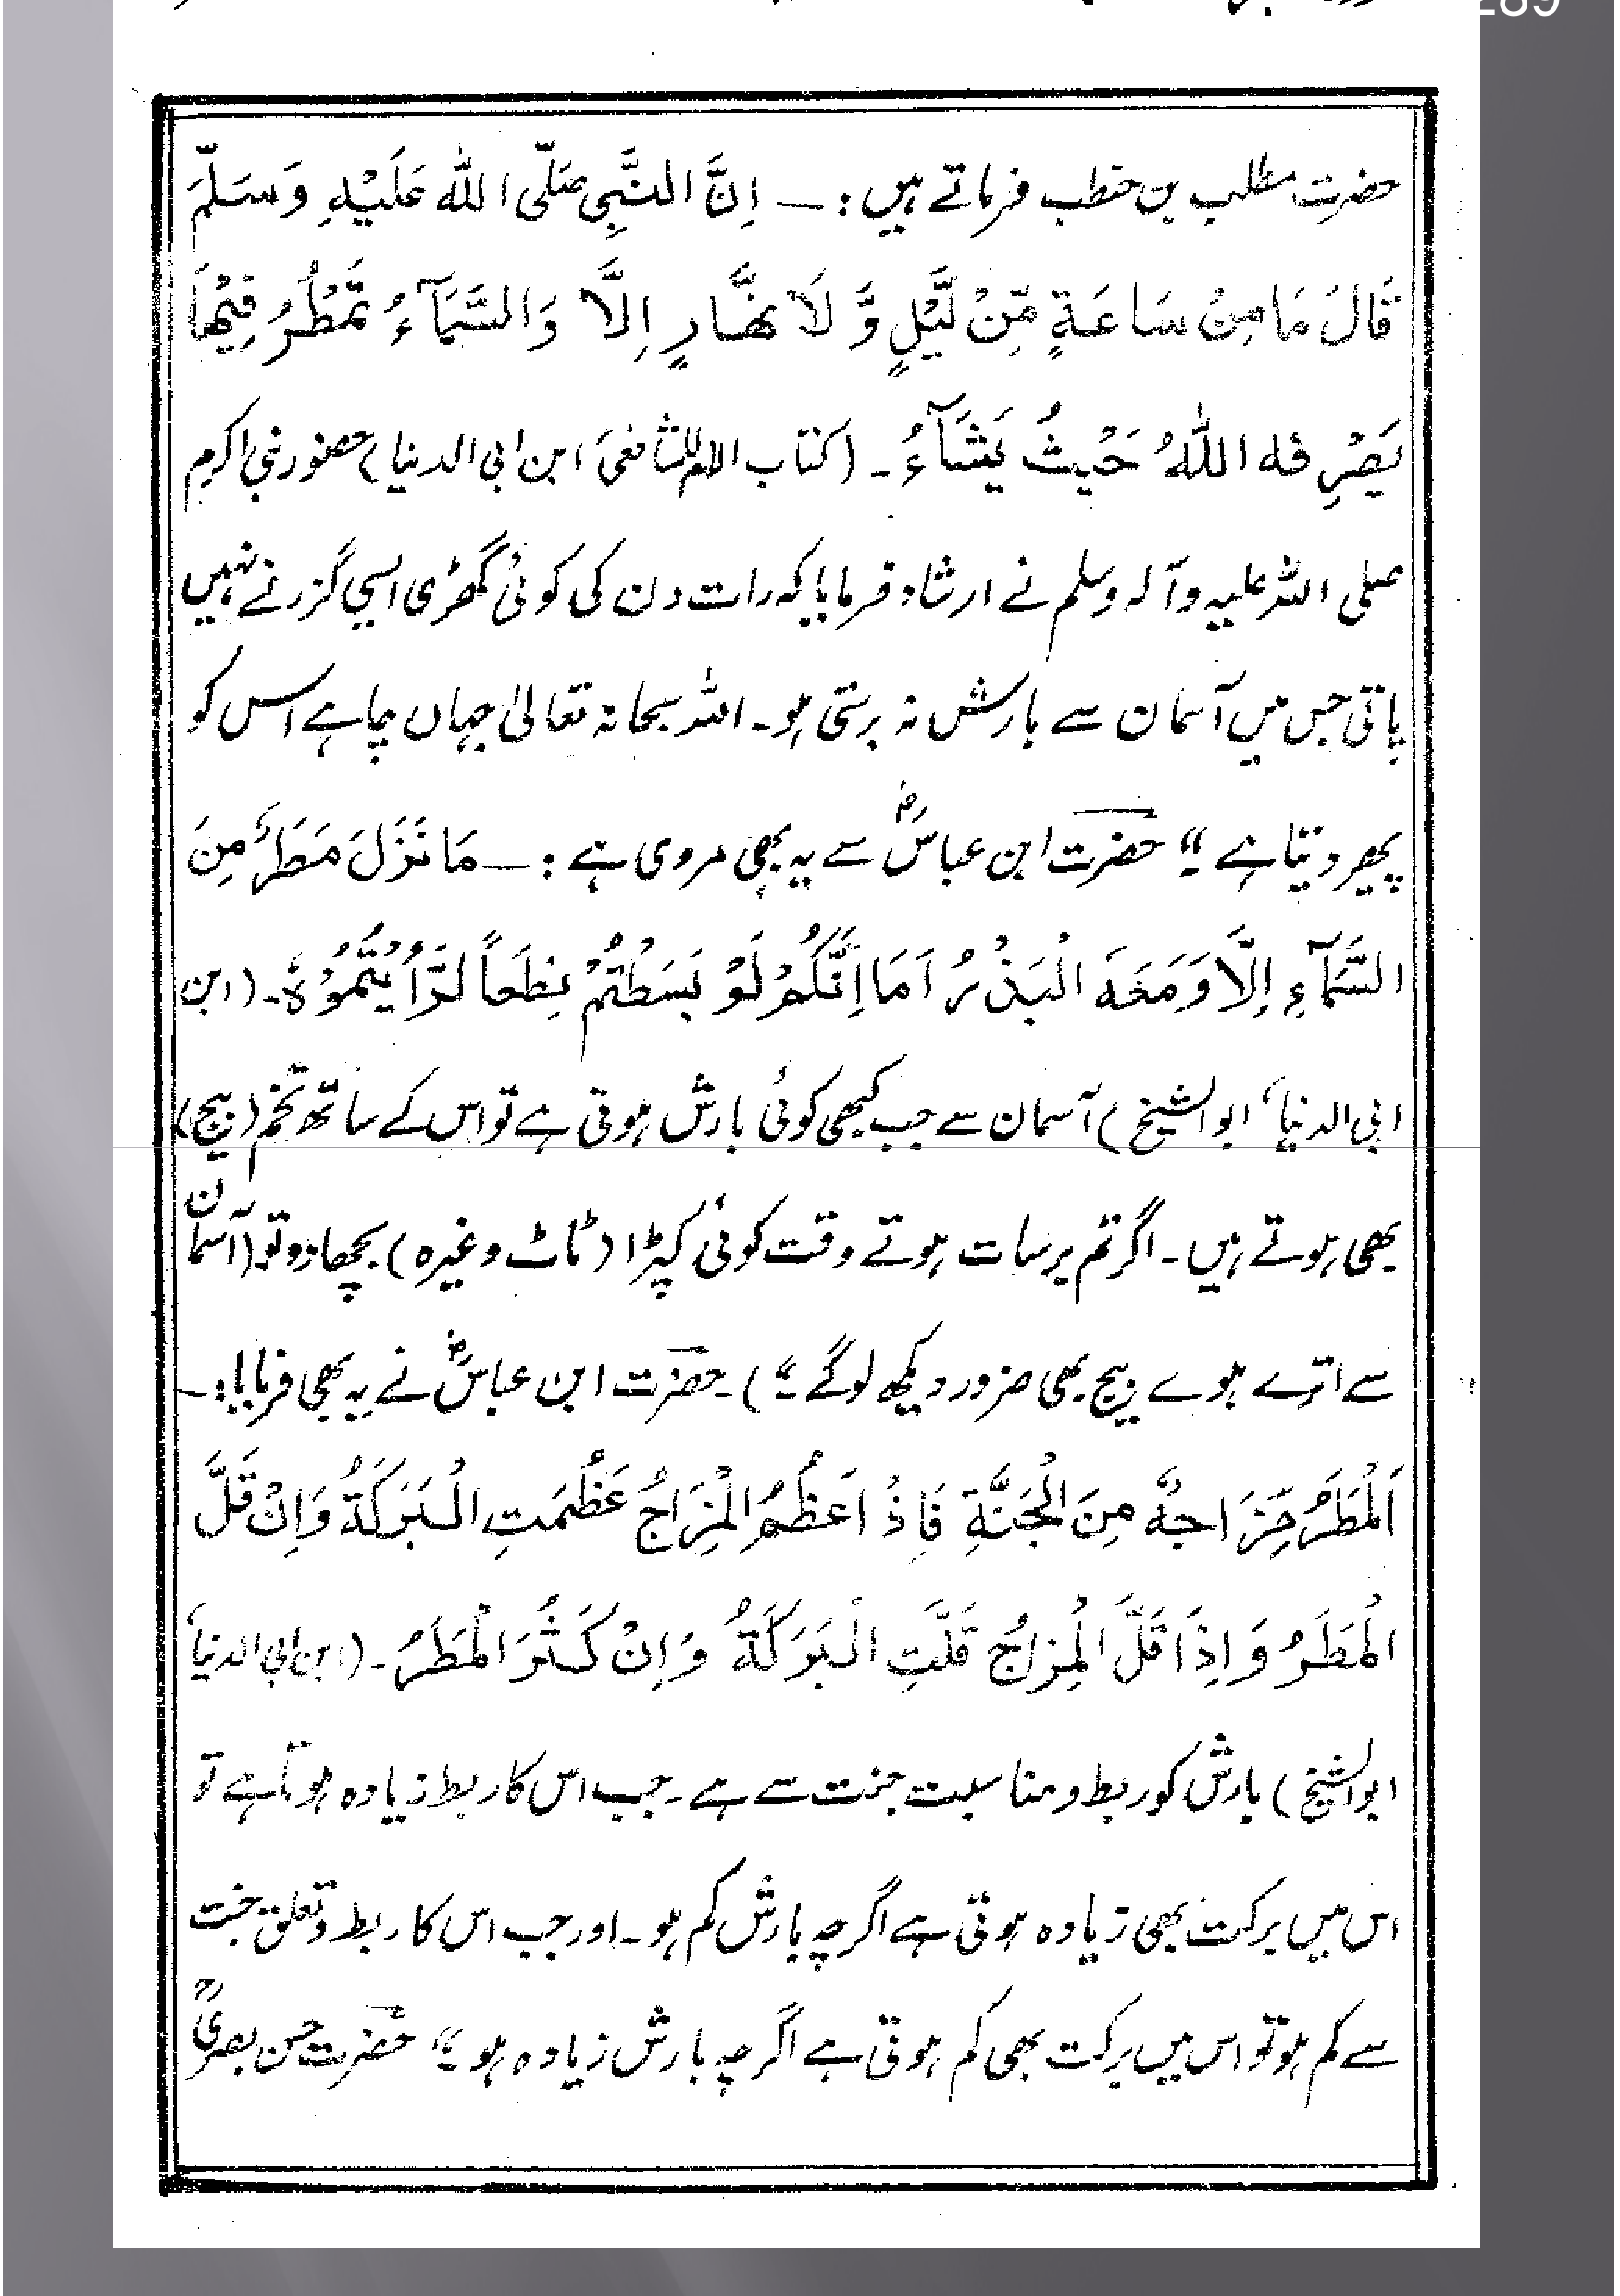 289
حضرت مطلب بن حنطب فرماتے ہیں :— اِنَّ النَّبِی صَلّی اللّٰہ عَلَیْہِ وَسَلَّمَ
قَالَ مَا مِنْ سَاعَۃٍ مِّنْ لَّیْلٍ وَّ لَا نَھَّارٍ اِلَّا وَالسَّمَآءُ تَمْطُرُ فِیْھَا
یَصْرِفہ اللّٰہُ حَیْثُ یَشَآءُ ۔ (کتاب الام للشافعیؒ ابن ابی الدنیا) حضور نبی اکرم
صلی اللہ علیہ وآلہ وسلم نے ارشاد فرمایا کہ رات دن کی کوئی گھڑی ایسی گزرنے نہیں
پاتی جس میں آسمان سے بارش نہ برستی ہو۔ اللہ سبحانہ تعالیٰ جہاں چاہے اس کو
پھیر دیتا ہے ۔“ حضرت ابن عباسؓ سے یہ بھی مروی ہے :— مَا نَزَلَ مَطَرٌ مِنَ
السَّمَآءِ اِلَّا وَمَعَہَ الْبَذْرُ اَمَا اِنَّکُمْ لَوْ بَسَطْتُمْ نِطَعاً لَرَّاَیْتُمُوْہُ ۔ (ابن
ابی الدنیا، ابوالشیخ) آسمان سے جب کبھی کوئی بارش ہوتی ہے تو اس کے ساتھ تخم (بیج)
بھی ہوتے ہیں ۔ اگر تم برسات ہوتے وقت کوئی کپڑا (ٹاٹ وغیرہ) بچھا دو تو (آسمان
سے اترے ہوے بیج بھی ضرور دیکھ لوگے ۔“) ۔ حضرت ابن عباسؓ نے یہ بھی فرمایا :—
اَلْمَطَرُ مِّزَاجہٗ مِنَ الْجَنَّۃِ فَاِذْ اعَظُمُ الْمِزَاجُ عَظُمَتِ الْبَرَکَۃُ وَاِنْ قَلَّ
الْمَطَرُ وَ اِذَا قَلَّ الْمِزَاجُ قَلَّتِ الْبَرَکَۃُ وَاِنْ کَثُرَ الْمَطَرُ ۔ (ابن ابی الدنیا،
ابوالشیخ) بارش کو ربط و مناسبت جنت سے ہے ۔ جب اس کا ربط زیادہ ہوتا ہے تو
اس میں برکت بھی زیادہ ہوتی ہے اگرچہ بارش کم ہو ۔ اور جب اس کا ربط و تعلق جنت
سے کم ہو تو اس میں برکت بھی کم ہوتی ہے اگرچہ بارش زیادہ ہو ۔“ حضرت حسن بصریؒ